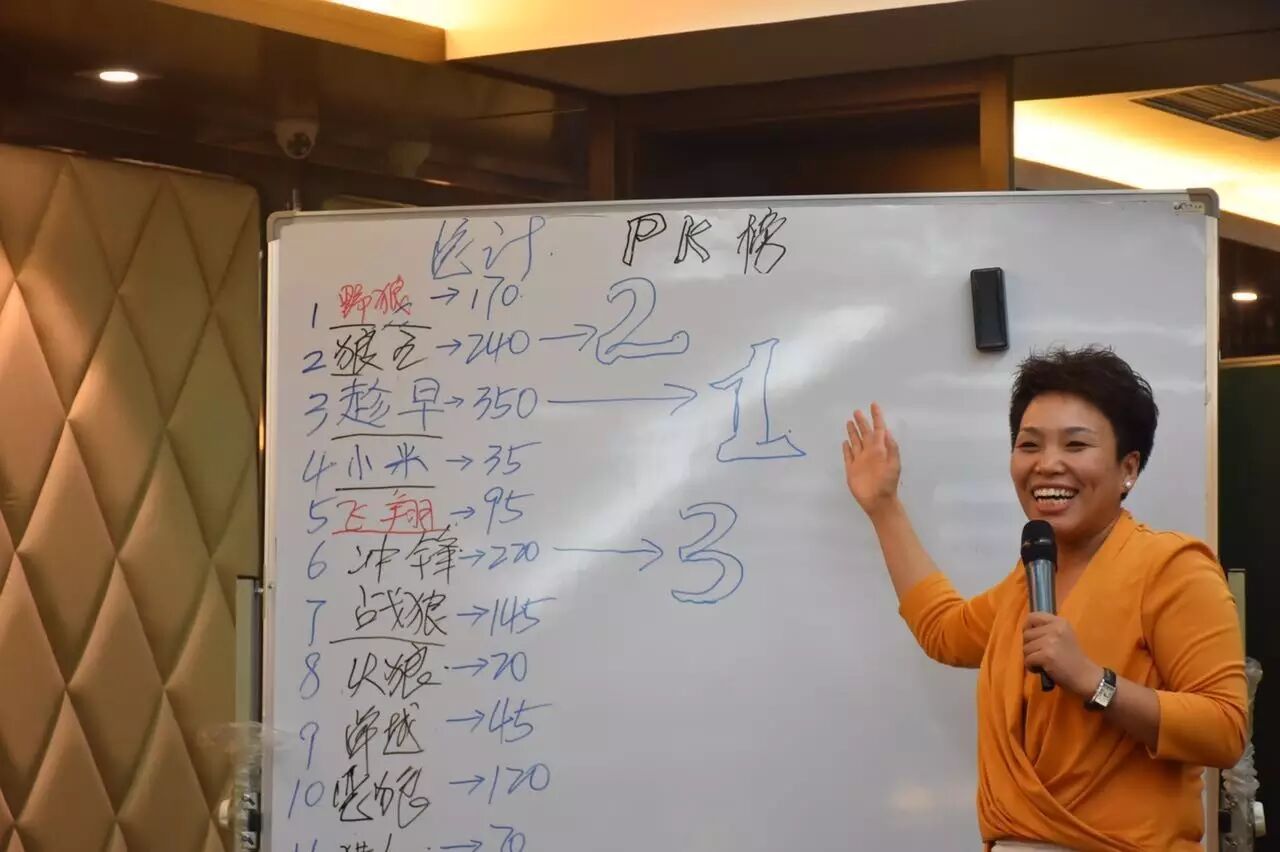 总计 PK榜
1 野狼 → 170
2 狼 → 240 → 2
3 趁早 → 350 → 1
4 小米 → 35
5 飞翔 → 95
6 冲锋 → 220 → 3
7 战狼 → 145
8 火狼 → 20
9 卓越 → 45
10 恶狼 → 120
11 → 70